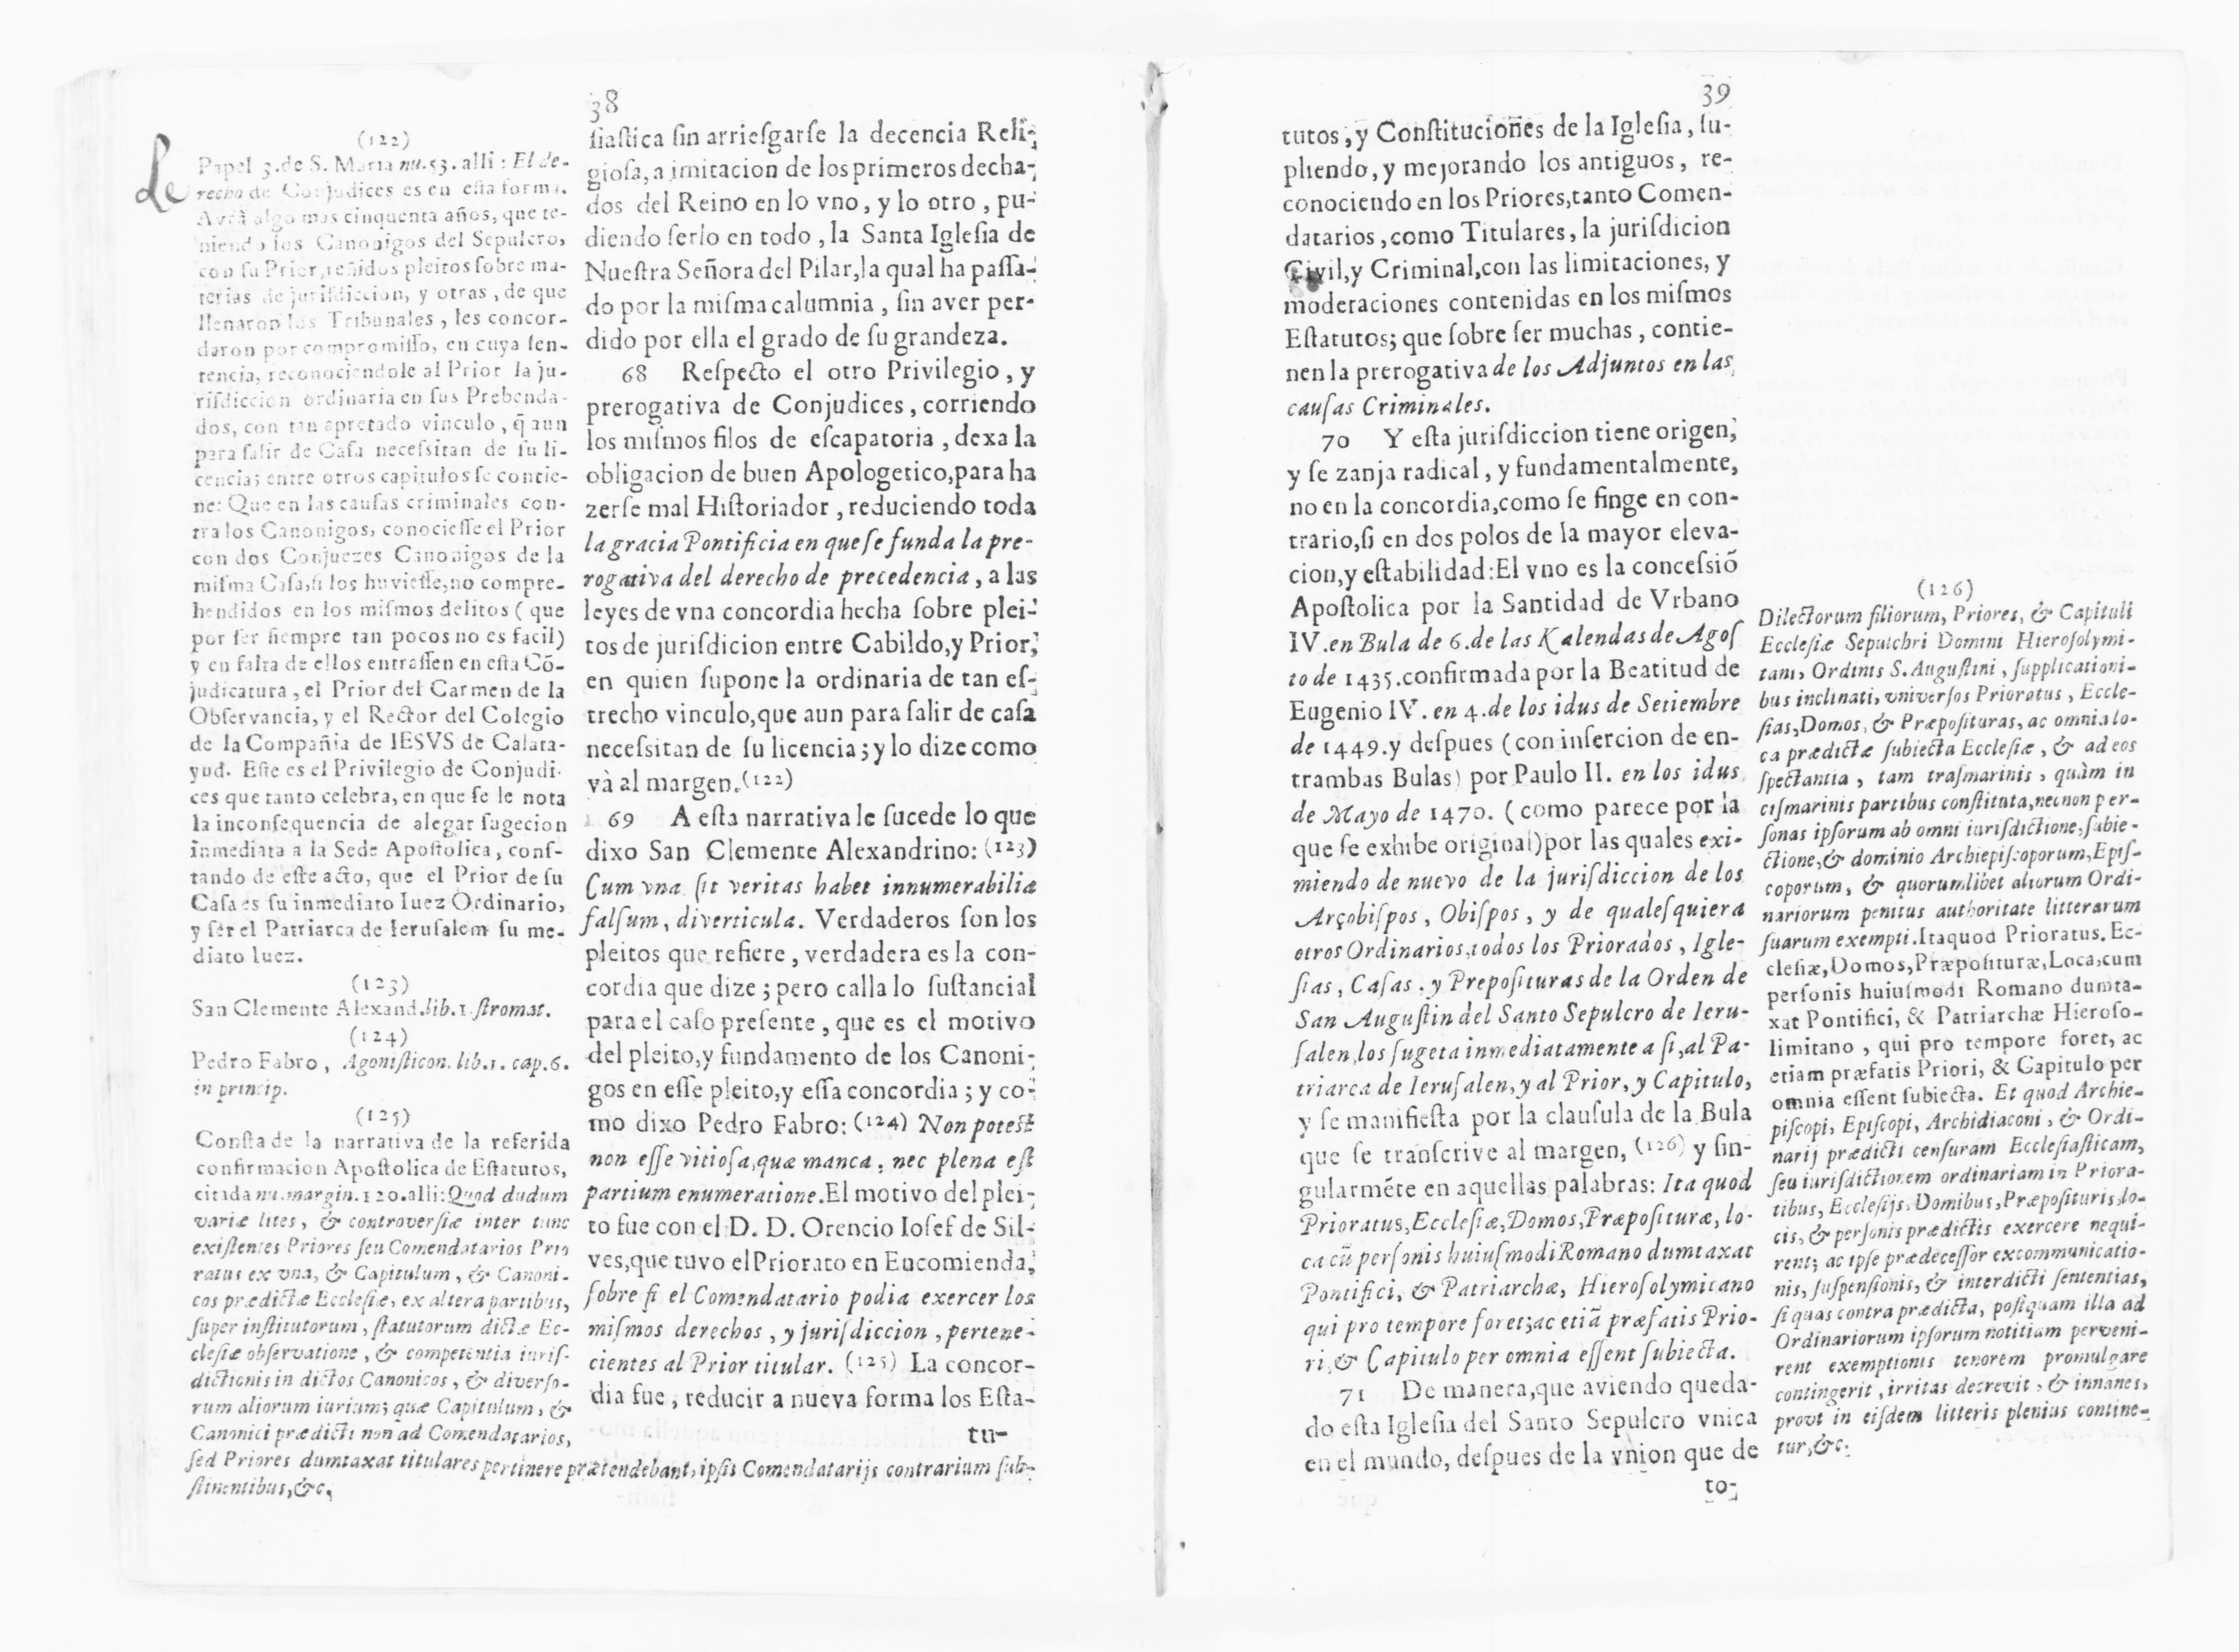 38
siastica sin arriesgarse la decencia Reli-
giosa, a imitacion de los primeros decha-
dos del Reino en lo vno, y lo otro, pu-
diendo serlo en todo, la Santa Iglesia de
Nuestra Señora del Pilar, la qual ha passa-
do por la misma calumnia, sin aver per-
dido por ella el grado de su grandeza.
68 Respecto el otro Privilegio, y
prerogativa de Conjudices, corriendo
los mismos filos de escapatoria, dexa la
obligacion de buen Apologetico, para ha
zerse mal Historiador, reduciendo toda
la gracia Pontificia en que se funda la pre-
rogativa del derecho de precedencia, a las
leyes de vna concordia hecha sobre plei-
tos de jurisdicion entre Cabildo, y Prior,
en quien supone la ordinaria de tan es-
trecho vinculo, que aun para salir de casa
necessitan de su licencia; y lo dize como
và al margen. (122)
69 A esta narrativa le sucede lo que
dixo San Clemente Alexandrino: (123)
Cum vna sit veritas habet innumerabilia
falsum, diverticula. Verdaderos son los
pleitos que refiere, verdadera es la con-
cordia que dize; pero calla lo sustancial
para el caso presente, que es el motivo
del pleito, y fundamento de los Canoni-
gos en esse pleito, y essa concordia; y co-
mo dixo Pedro Fabro: (124) Non potest
non esse vitiosa, quæ manca, nec plena est
partium enumeratione. El motivo del plei-
to fue con el D. D. Orencio Iosef de Sil-
ves, que tuvo el Priorato en Encomienda,
sobre si el Comendatario podia exercer los
mismos derechos, y jurisdiccion, pertene-
cientes al Prior titular. (125) La concor-
dia fue, reducir a nueva forma los Esta-
tu-
Le
(122)
Papel 3. de S. Maria nu. 53. alli: El de-
recho de Conjudices es en esta forma.
Avrà algo mas cinquenta años, que te-
niendo los Canonigos del Sepulcro,
con su Prior, reñidos pleitos sobre ma-
terias de jurisdiccion, y otras, de que
llenaron los Tribunales, les concor-
daron por compromisso, en cuya sen-
tencia, reconociendole al Prior la ju-
risdiccion ordinaria en sus Prebenda-
dos, con tan apretado vinculo, q̃ aun
para salir de Casa necessitan de su li-
cencia; entre otros capitulos se contie-
ne: Que en las causas criminales con-
tra los Canonigos, conociesse el Prior
con dos Conjuezes Canonigos de la
misma Casa, si los huviesse, no compre-
hendidos en los mismos delitos (que
por ser siempre tan pocos no es facil)
y en falta de ellos entrassen en esta Cõ-
judicatura, el Prior del Carmen de la
Observancia, y el Rector del Colegio
de la Compañia de IESVS de Calata-
yud. Este es el Privilegio de Conjudi-
ces que tanto celebra, en que se le nota
la inconsequencia de alegar sugecion
inmediata a la Sede Apostolica, cons-
tando de este acto, que el Prior de su
Casa es su inmediato Iuez Ordinario,
y ser el Patriarca de Ierusalem su me-
diato Iuez.
(123)
San Clemente Alexand. lib. 1. stromat.
(124)
Pedro Fabro, Agonisticon. lib. 1. cap. 6.
in princip.
(125)
Consta de la narrativa de la referida
confirmacion Apostolica de Estatutos,
citada nu. margin. 120. alli: Quod dudum
variæ lites, & controversiæ inter tunc
existentes Priores seu Comendatarios Prio
ratus ex vna, & Capitulum, & Canoni-
cos prædictæ Ecclesiæ, ex altera partibus,
super institutorum, statutorum dictæ Ec-
clesiæ observatione, & competentia iuris-
dictionis in dictos Canonicos, & diverso-
rum aliorum iurium; quæ Capitulum, &
Canonici prædicti non ad Comendatarios,
sed Priores dumtaxat titulares pertinere prætendebant, ipsis Comendatarijs contrarium sub-
stinentibus, &c.
39
tutos, y Constituciones de la Iglesia, su-
pliendo, y mejorando los antiguos, re-
conociendo en los Priores, tanto Comen-
datarios, como Titulares, la jurisdicion
Civil, y Criminal, con las limitaciones, y
moderaciones contenidas en los mismos
Estatutos; que sobre ser muchas, contie-
nen la prerogativa de los Adjuntos en las
causas Criminales.
70 Y esta jurisdiccion tiene origen,
y se zanja radical, y fundamentalmente,
no en la concordia, como se finge en con-
trario, si en dos polos de la mayor eleva-
cion, y estabilidad: El vno es la concessiõ
Apostolica por la Santidad de Vrbano
IV. en Bula de 6. de las Kalendas de Agos
to de 1435. confirmada por la Beatitud de
Eugenio IV. en 4. de los idus de Setiembre
de 1449. y despues (con insercion de en-
trambas Bulas) por Paulo II. en los idus
de Mayo de 1470. (como parece por la
que se exhibe original) por las quales exi-
miendo de nuevo de la jurisdiccion de los
Arçobispos, Obispos, y de qualesquiera
otros Ordinarios, todos los Priorados, Igle-
sias, Casas, y Preposituras de la Orden de
San Augustin del Santo Sepulcro de Ieru-
salen, los sugeta inmediatamente a si, al Pa-
triarca de Ierusalen, y al Prior, y Capitulo,
y se manifiesta por la clausula de la Bula
que se transcrive al margen, (126) y sin-
gularmẽte en aquellas palabras: Ita quod
Prioratus, Ecclesiæ, Domos, Præposituræ, lo-
ca cũ personis huiusmodi Romano dumtaxat
Pontifici, & Patriarchæ, Hierosolymitano
qui pro tempore foret; ac etiã præfatis Prio-
ri, & Capitulo per omnia essent subiecta.
71 De manera, que aviendo queda-
do esta Iglesia del Santo Sepulcro vnica
en el mundo, despues de la vnion que de
to-
(126)
Dilectorum filiorum, Priores, & Capituli
Ecclesiæ Sepulchri Domini Hierosolymi-
tani, Ordinis S. Augustini, supplicationi-
bus inclinati, vniversos Prioratus, Eccle-
sias, Domos, & Præposituras, ac omnia lo-
ca prædictæ subiecta Ecclesiæ, & ad eos
spectantia, tam trasmarinis, quàm in
cismarinis partibus constituta, necnon per-
sonas ipsorum ab omni iurisdictione, subie-
ctione, & dominio Archiepiscoporum, Epis-
coporum, & quorumlibet aliorum Ordi-
nariorum penitus authoritate litterarum
suarum exempti. Itaquod Prioratus, Ec-
clesiæ, Domos, Præposituræ, Loca, cum
personis huiusmodi Romano dumta-
xat Pontifici, & Patriarchæ Hieroso-
limitano, qui pro tempore foret, ac
etiam præfatis Priori, & Capitulo per
omnia essent subiecta. Et quod Archie-
piscopi, Episcopi, Archidiaconi, & Ordi-
narij prædicti censuram Ecclesiasticam,
seu iurisdictionem ordinariam in Priora-
tibus, Ecclesijs, Domibus, Præposituris, lo-
cis, & personis prædictis exercere nequi-
rent; ac ipse prædecessor excommunicatio-
nis, suspensionis, & interdicti sententias,
si quas contra prædicta, postquam illa ad
Ordinariorum ipsorum notitiam perveni-
rent exemptionis tenorem promulgare
contingerit, irritas decrevit, & innanes,
provt in eisdem litteris plenius contine-
tur, &c.